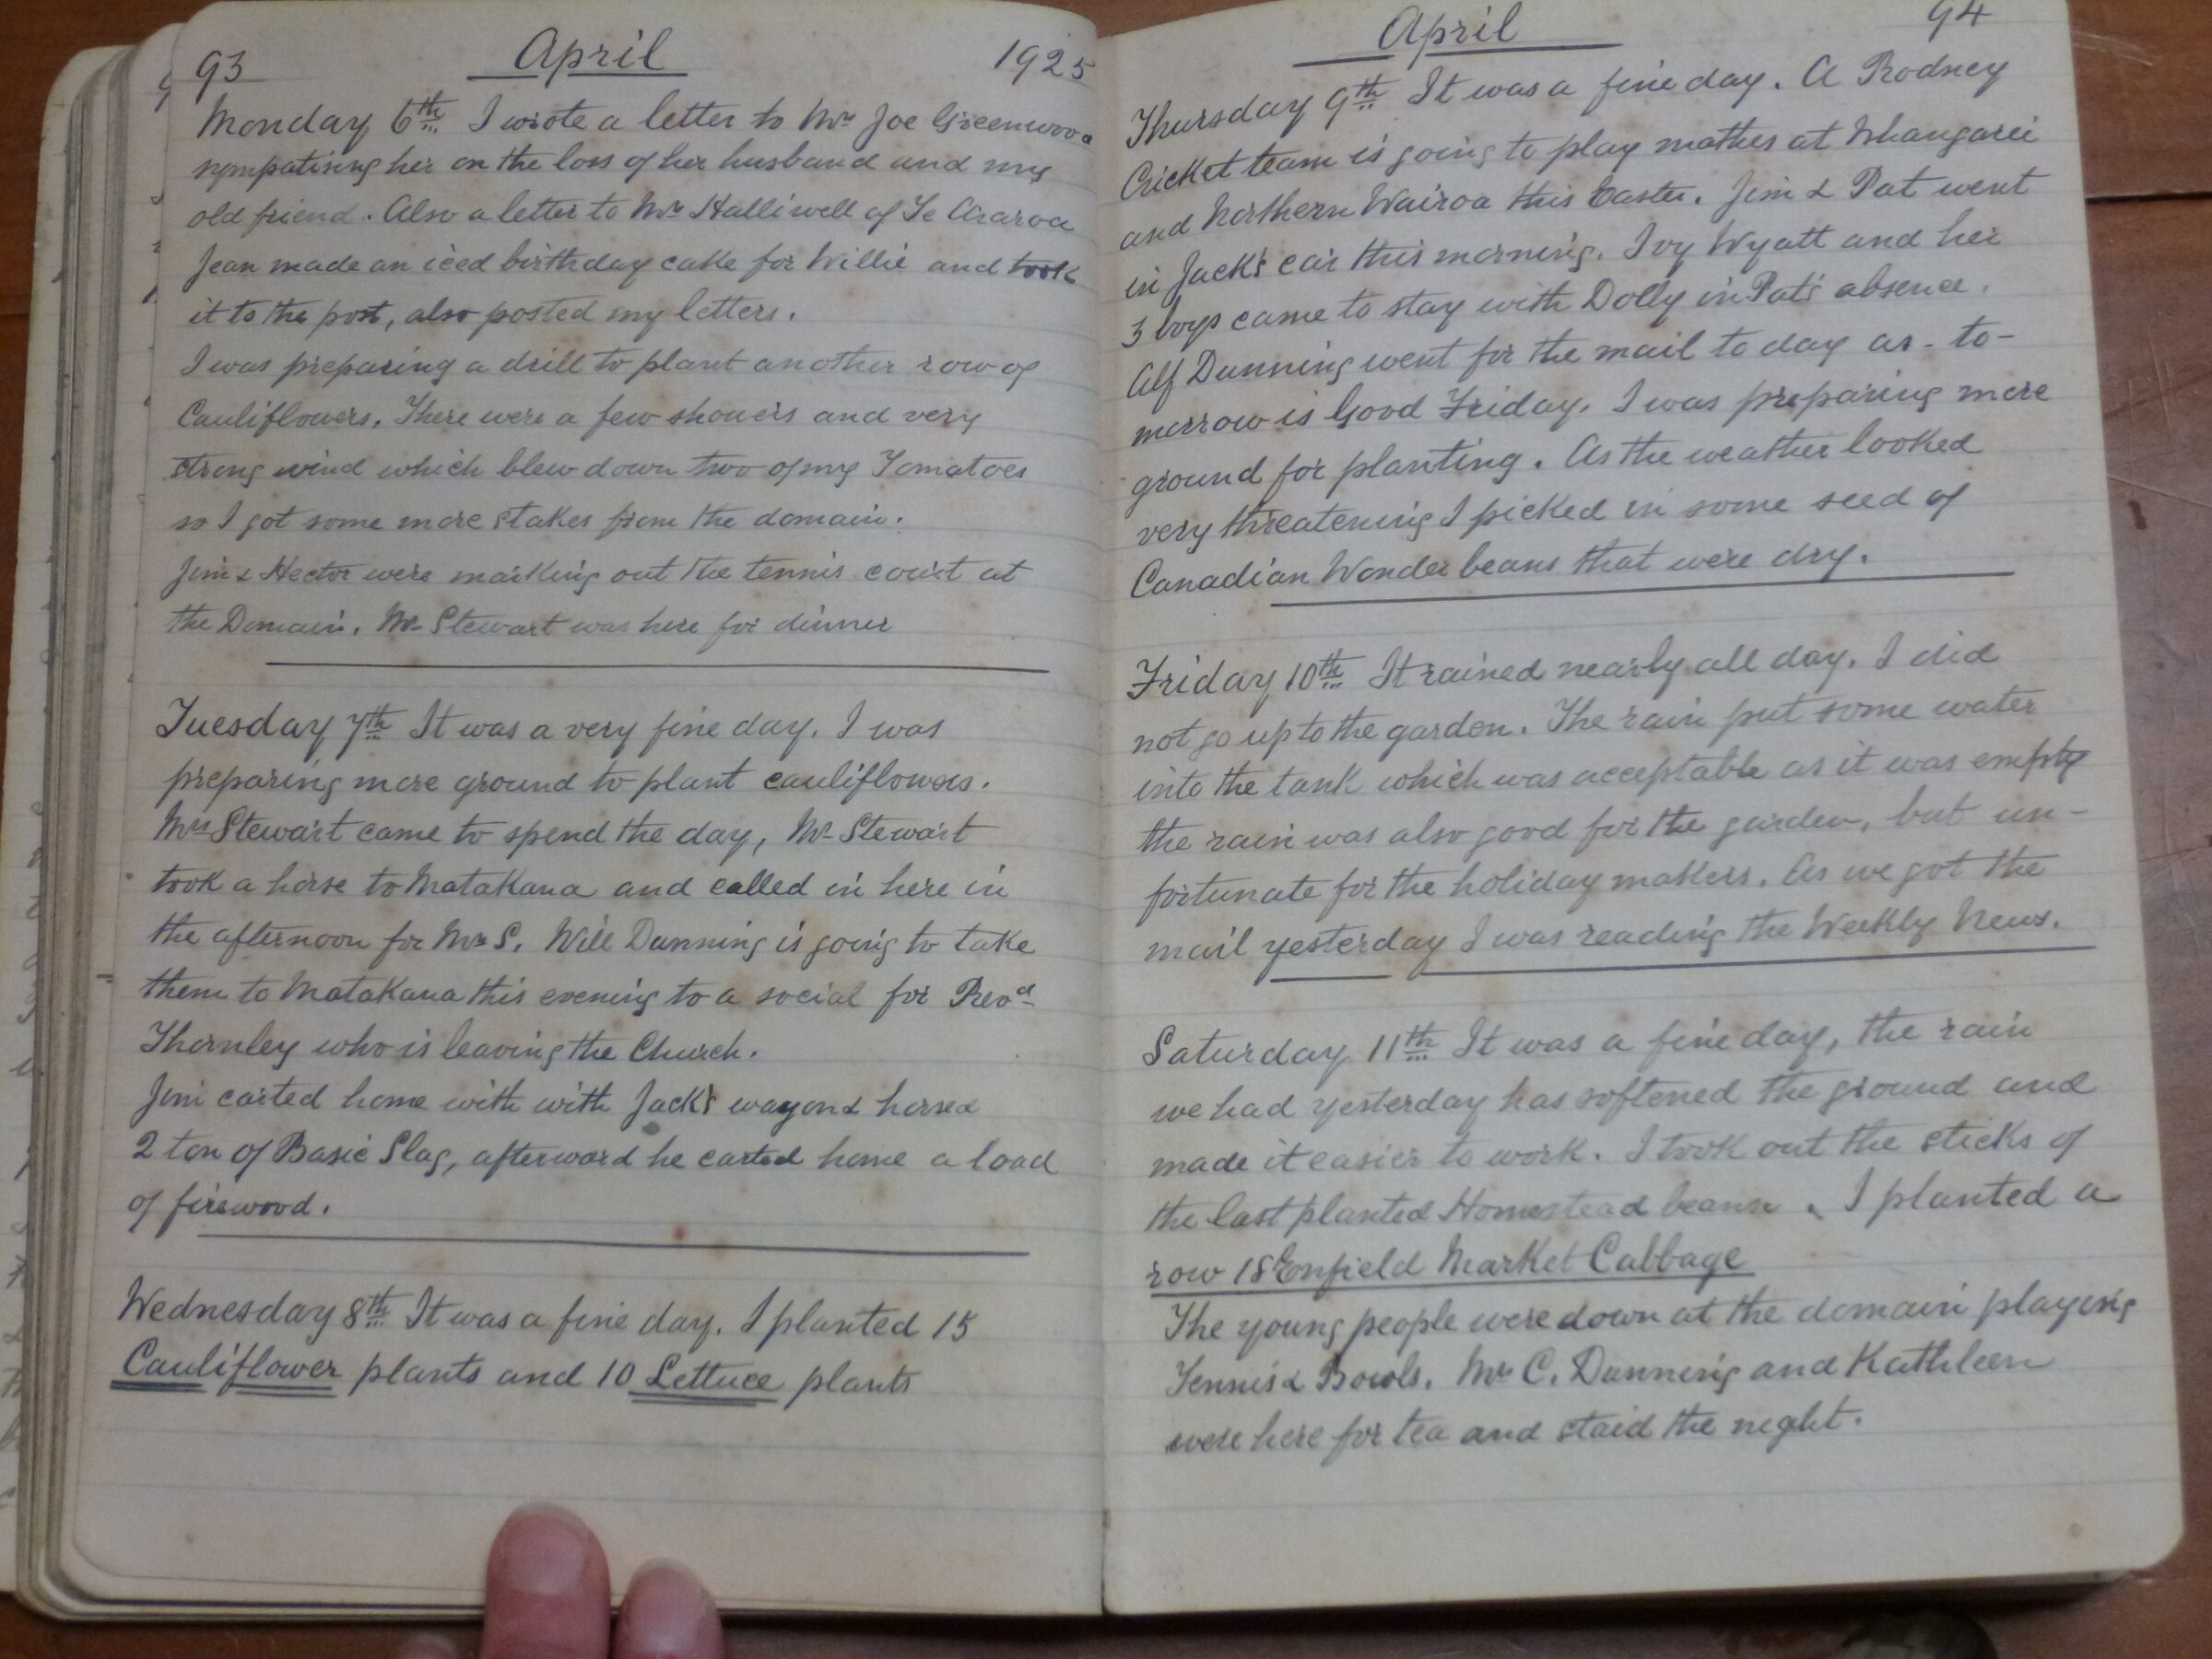 93 April 1925
Monday 6th I wrote a letter to Mrs Joe Greenwood
sympatising her on the loss of her husband and my
old friend. Also a letter to Mr Halliwell of Te Araroa
Jean made an iced birthday cake for Willie and took
it to the post, also posted my letters.
I was preparing a drill to plant another row of
Cauliflowers. There were a few showers and very
strong wind which blew down two of my Tomatoes
so I got some more stakes from the domain.
Jim & Hector were marking out the tennis court at
the Domain. Mr Stewart was here for dinner
Tuesday 7th It was a very fine day. I was
preparing more ground to plant cauliflowers.
Mrs Stewart came to spend the day, Mr Stewart
took a horse to Matakana and called in here in
the afternoon for Mrs S. Will Dunning is going to take
them to Matakana this evening to a social for Revd
Thornley who is leaving the Church.
Jim carted home with with Jack's wagon & horses
2 ton of Basic Slag, afterward he carted home a load
of firewood.
Wednesday 8th It was a fine day. I planted 15
Cauliflower plants and 10 Lettuce plants
April 94
Thursday 9th It was a fine day. A Rodney
Cricket team is going to play mathes at Whangarei
and Northern Wairoa this Easter. Jim & Pat went
in Jack's car this morning. Ivy Wyatt and her
3 boys came to stay with Dolly in Pat's absence.
Alf Dunning went for the mail to day as - to-
morrow is Good Friday. I was preparing more
ground for planting. As the weather looked
very threatening I picked in some seed of
Canadian Wonder beans that were dry.
Friday 10th It rained nearly all day. I did
not go up to the garden. The rain put some water
into the tank which was acceptable as it was empty
the rain was also good for the garden, but un-
fortunate for the holiday makers. As we got the
mail yesterday I was reading the Weekly News.
Saturday 11th It was a fine day, the rain
we had yesterday has softened the ground and
made it easier to work. I took out the sticks of
the last planted Homestead beans. I planted a
row 18 Enfield Market Cabbage
The young people were down at the domain playing
Tennis & Bowls. Mrs C. Dunning and Kathleen
were here for tea and staid the night.